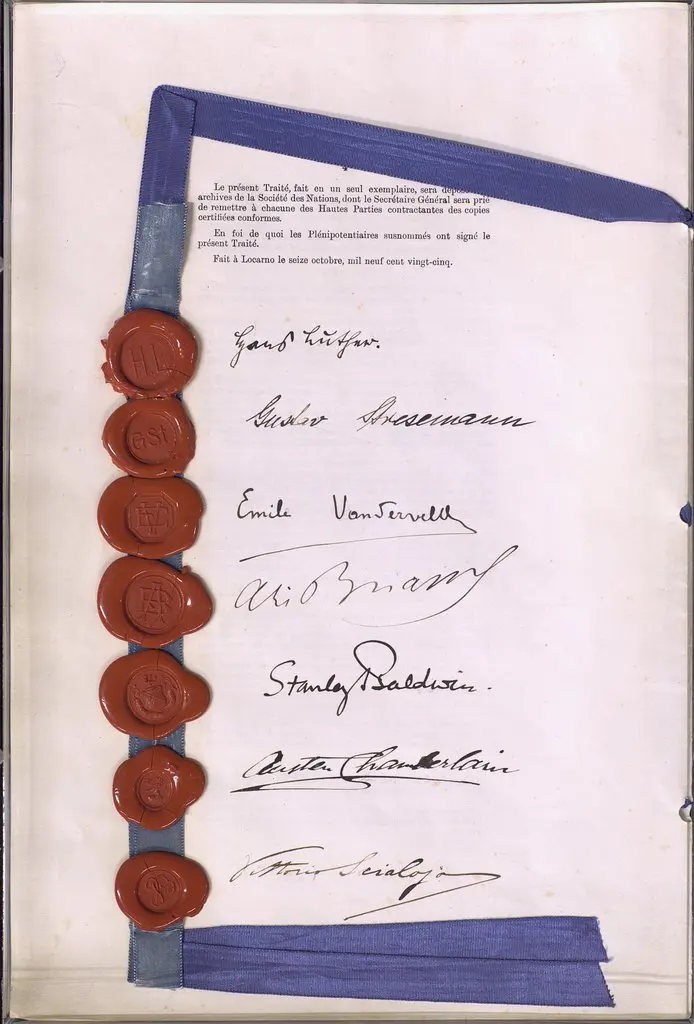 Le présent Traité, fait en un seul exemplaire, sera déposé
archives de la Société des Nations, dont le Secrétaire Général sera prié
de remettre à chacune des Hautes Parties contractantes des copies
certifiées conformes.
En foi de quoi les Plénipotentiaires susnommés ont signé le
présent Traité.
Fait à Locarno le seize octobre, mil neuf cent vingt-cinq.
H.L
Hans Luther.
GSt
Gustav Stresemann
Emile Vandervelde
Ari Briand
Stanley Baldwin.
Austen Chamberlain
Vittorio Scialoja